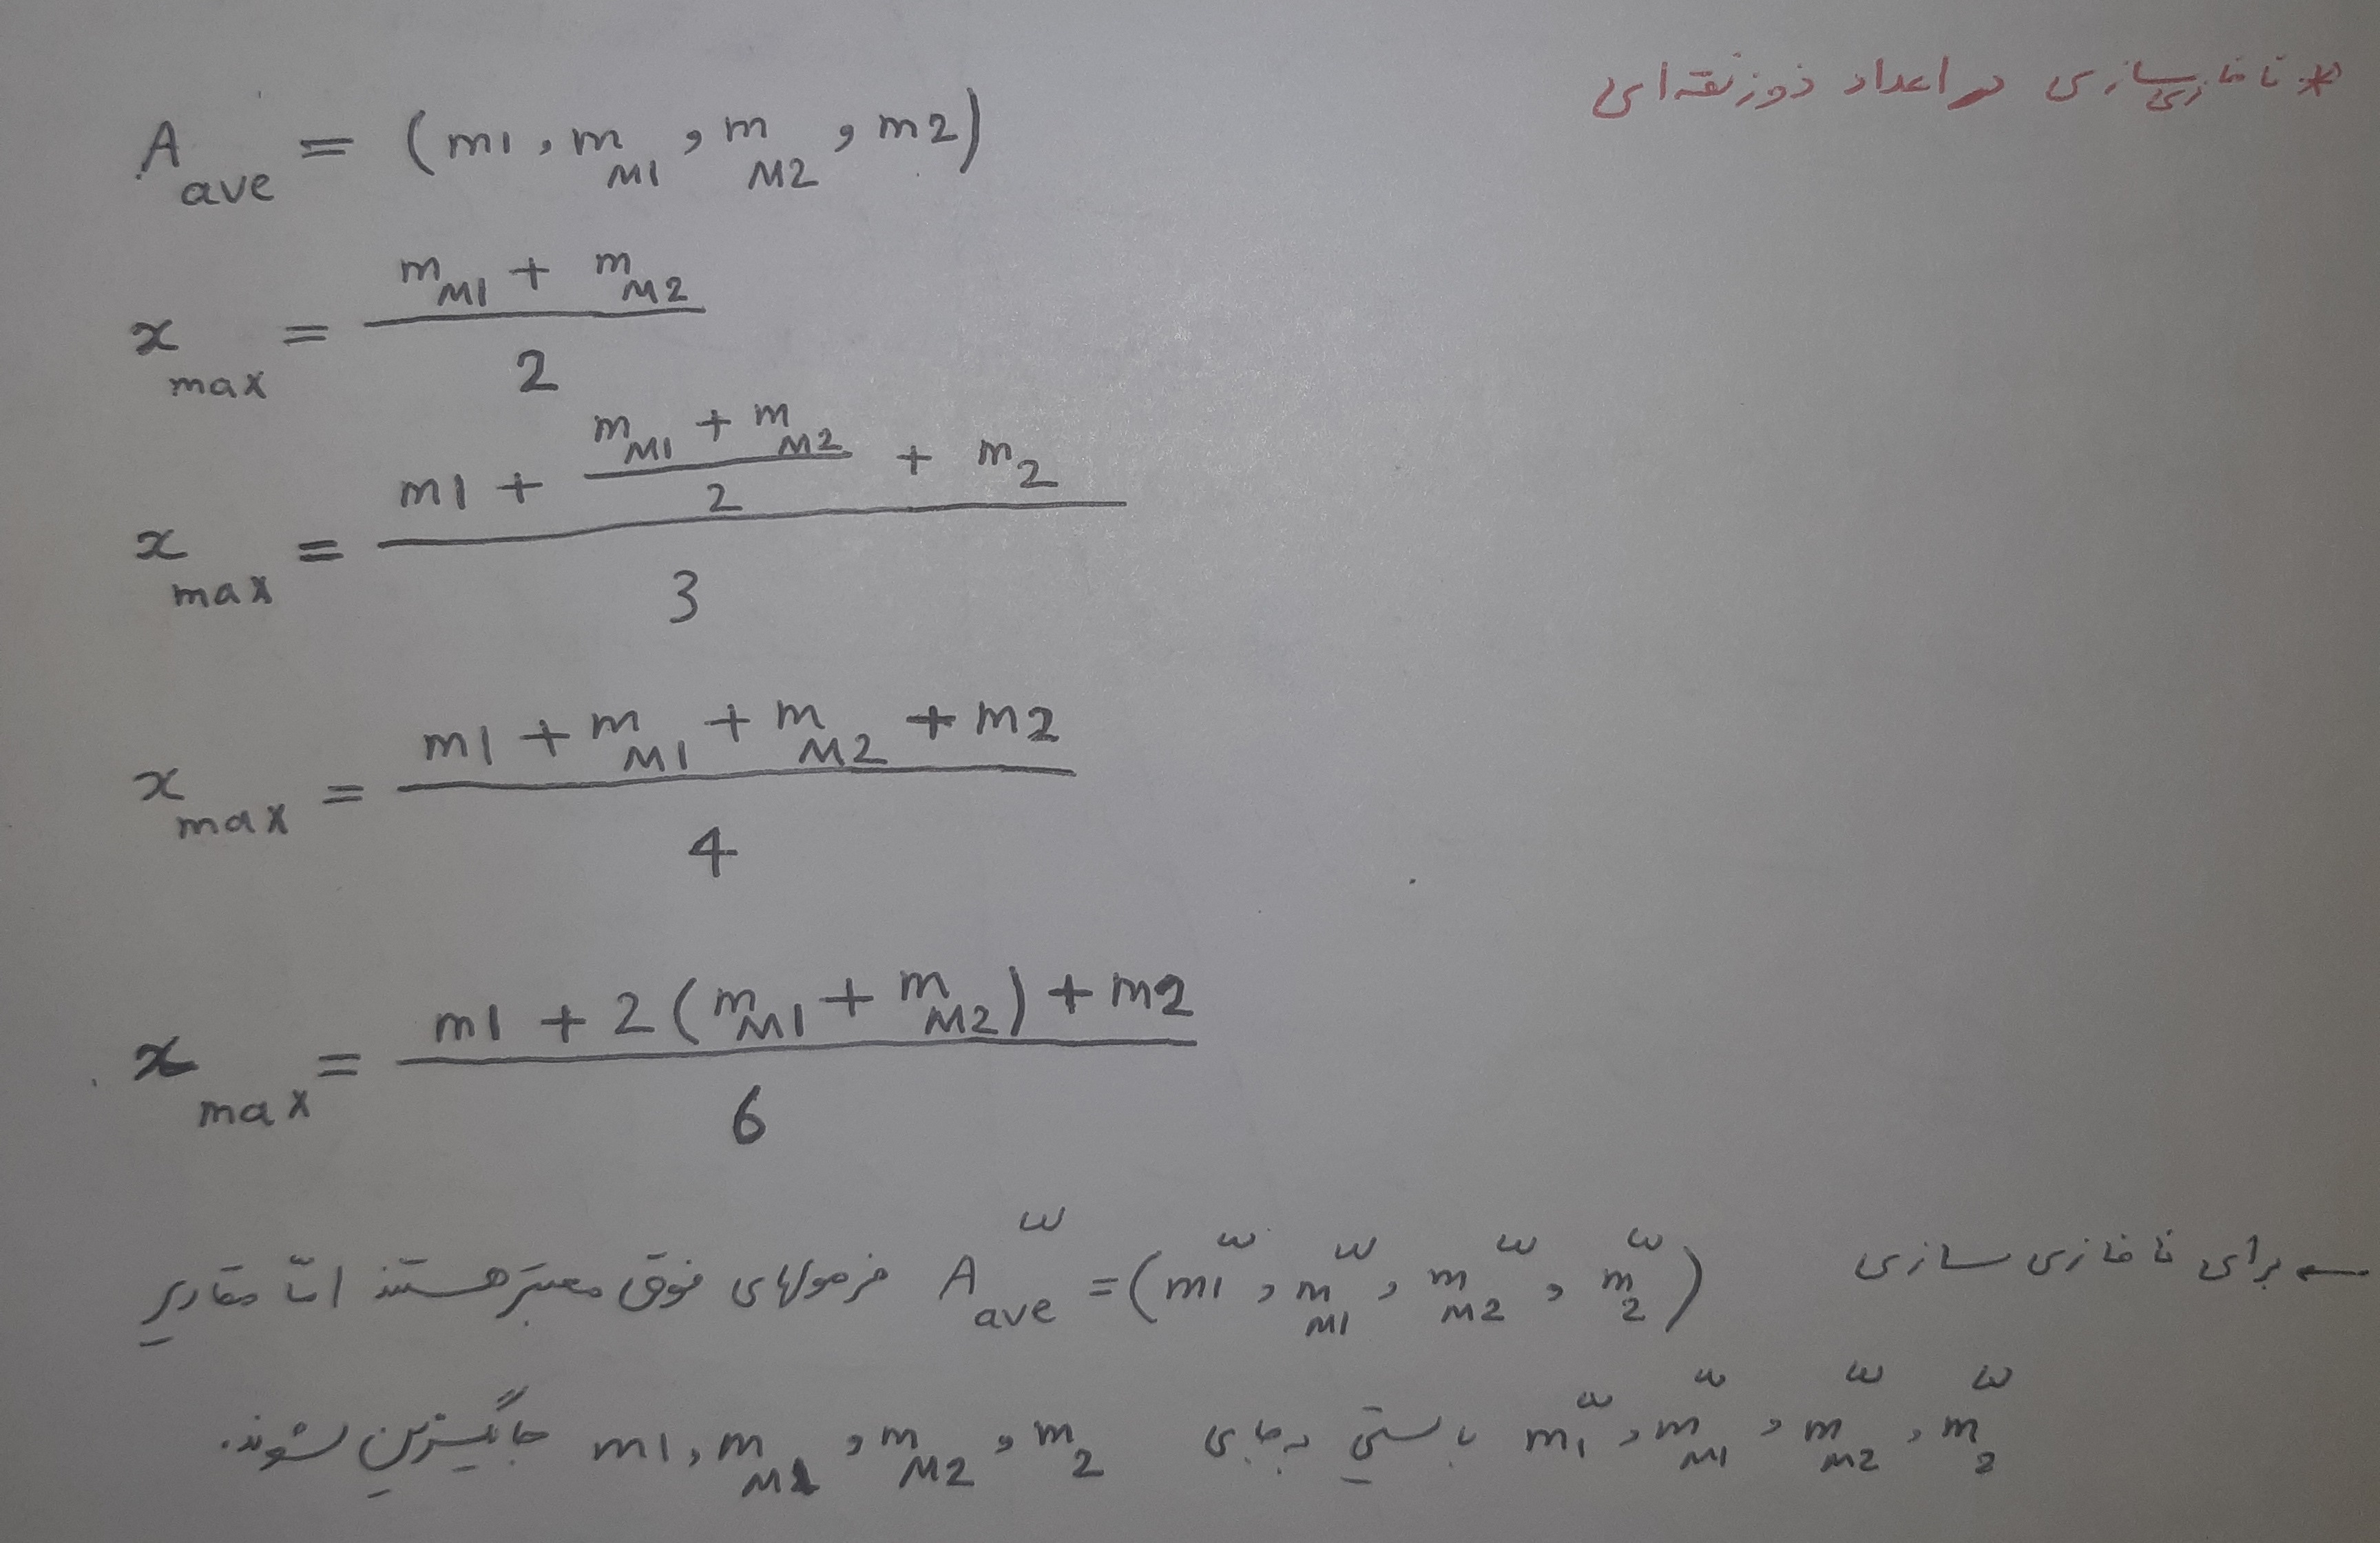 * نافازی سازی در اعداد ذوزنقه ای
A_ave = (m1, m_M1, m_M2, m2)
x_max = (m_M1 + m_M2) / 2
x_max = (m1 + (m_M1 + m_M2)/2 + m_2) / 3
x_max = (m1 + m_M1 + m_M2 + m2) / 4
x_max = (m1 + 2(m_M1 + m_M2) + m2) / 6
← برای نافازی سازی A_ave^ω = (m1^ω, m_M1^ω, m_M2^ω, m_2^ω) فرمولهای فوق معتبر هستند امّا مقادیر
m_1^ω, m_M1^ω, m_M2^ω, m_2^ω بایستی بجای m1, m_M1, m_M2, m_2 جایگزین شوند.